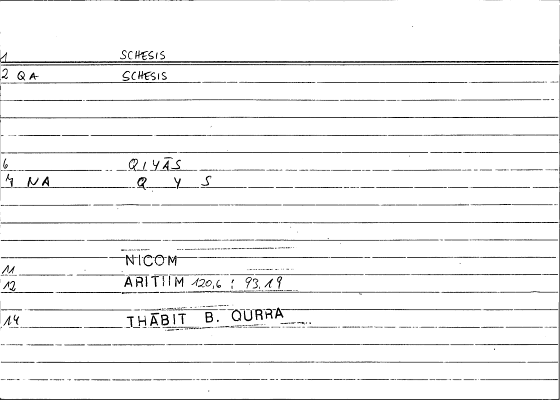 1 SCHESIS
2 QA SCHESIS
6 QIYĀS
7 NA Q Y S
11 NICOM
12 ARITIIM 120,6 : 93,19
14 THĀBIT B. QURRA